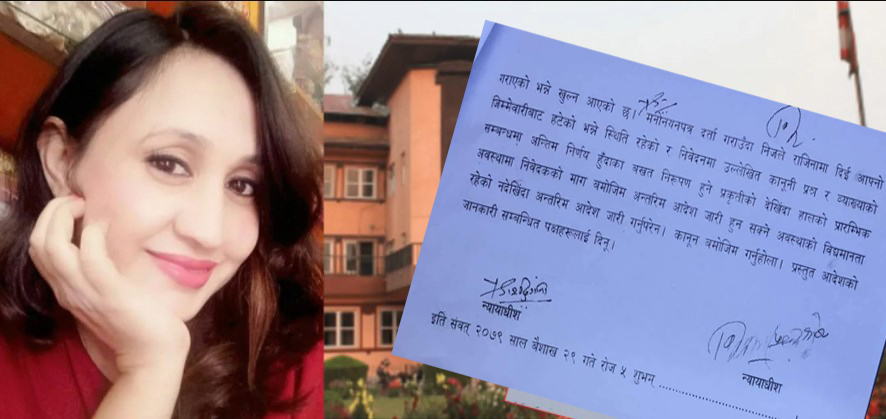 गराएको भन्ने खुल्न आएको छ। मनोनयनपत्र दर्ता गराउँदा निजले राजिनामा दिई आफ्नो
जिम्मेवारीबाट हटेको भन्ने स्थिति रहेको र निवेदनमा उल्लेखित कानूनी प्रश्न र व्याख्याको
सम्बन्धमा अन्तिम निर्णय हुँदाका बखत निरूपण हुने प्रकृतीको देखिंदा हालको प्रारम्भिक
अवस्थामा निवेदकको माग बमोजिम अन्तरिम आदेश जारी हुन सक्ने अवस्थाको विद्यमानता
रहेको नदेखिंदा अन्तरिम आदेश जारी गर्नुपरेन। कानून बमोजिम गर्नुहोला। प्रस्तुत आदेशको
जानकारी सम्बन्धित पक्षहरूलाई दिनू।
न्यायाधीश
न्यायाधीश
इति संवत् २०७९ साल बैशाख २९ गते रोज ५ शुभम् ..................